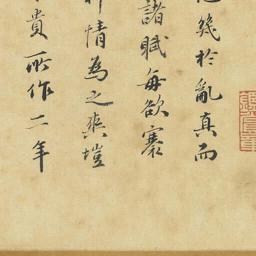 幾於亂真而
諸賦每欲褰
情為之爽塏
貴所作二年